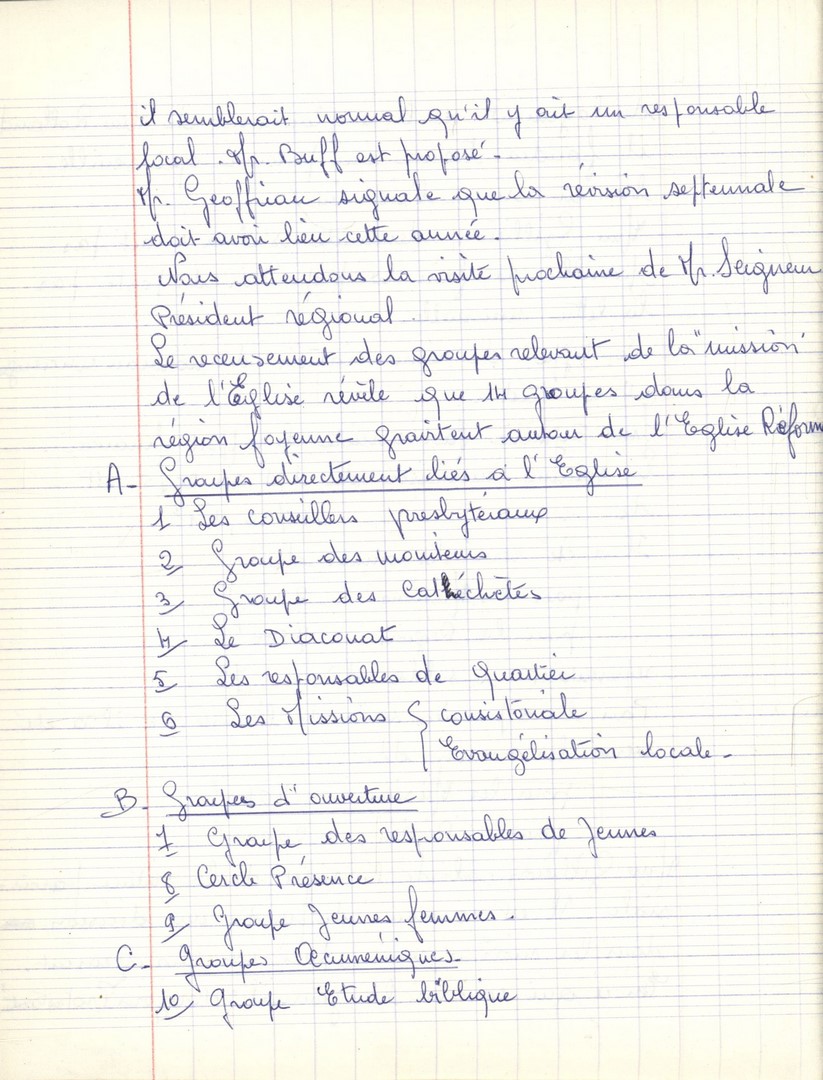 il semblerait normal qu'il y ait un responsable
local. Mr. Buff est proposé.
Mr. Geoffriau signale que la révision septennale
doit avoir lieu cette année.
Nous attendons la visite prochaine de Mr. Seigneur
Président régional.
Le recensement des groupes relevant de la "mission"
de l'Eglise révèle que 14 groupes dans la
région foyenne gravitent autour de l'Eglise Réform
A- Groupes directement liés à l'Eglise
1 Les conseillers presbytéraux
2 Groupe des moniteurs
3 Groupe des Catéchètes
4 Le Diaconat
5 Les responsables de quartier
6 Les Missions { consistoriale
Evangélisation locale -
B- Groupes d'ouverture
7 Groupe des responsables de Jeunes
8 Cercle Présence
9 Groupe Jeunes femmes.
C- Groupes Œcuméniques-
10 Groupe Etude biblique